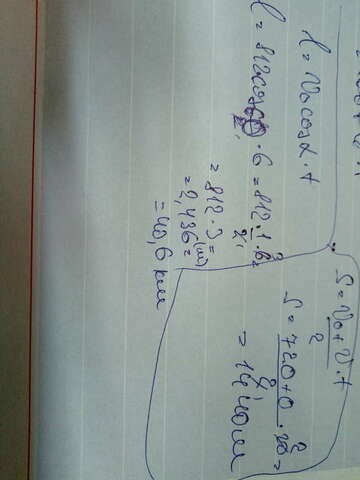 l = v₀cosα · t
l = 812cos60 · 6 = 812 · 1/2 · 6 =
= 812 · 3 =
= 2,436 (м) =
= 40,6 км
S = v₀ + v/2 · t
S = 720 + 0/2 · 20 =
= 1440 м